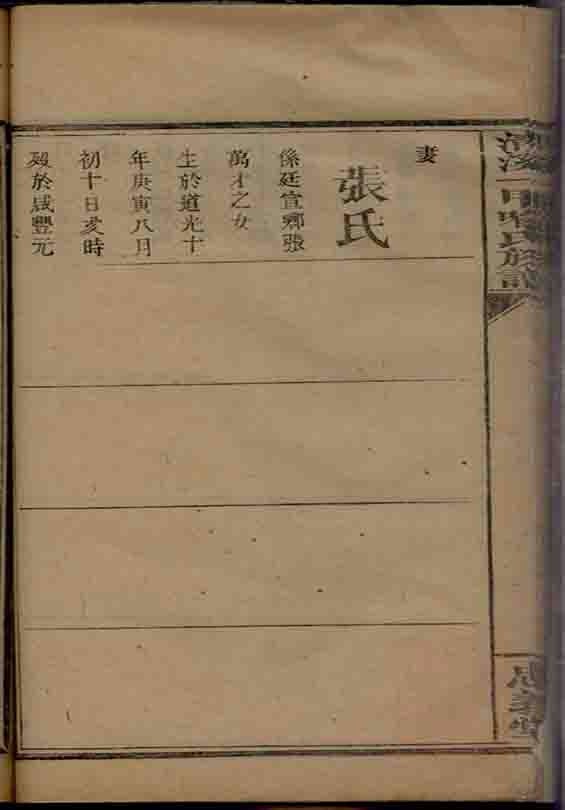 妻
張氏
係廷宣鄉張
萬才之女
生於道光十
年庚寅八月
初十日亥時
歿於咸豐元
氏族譜
堂